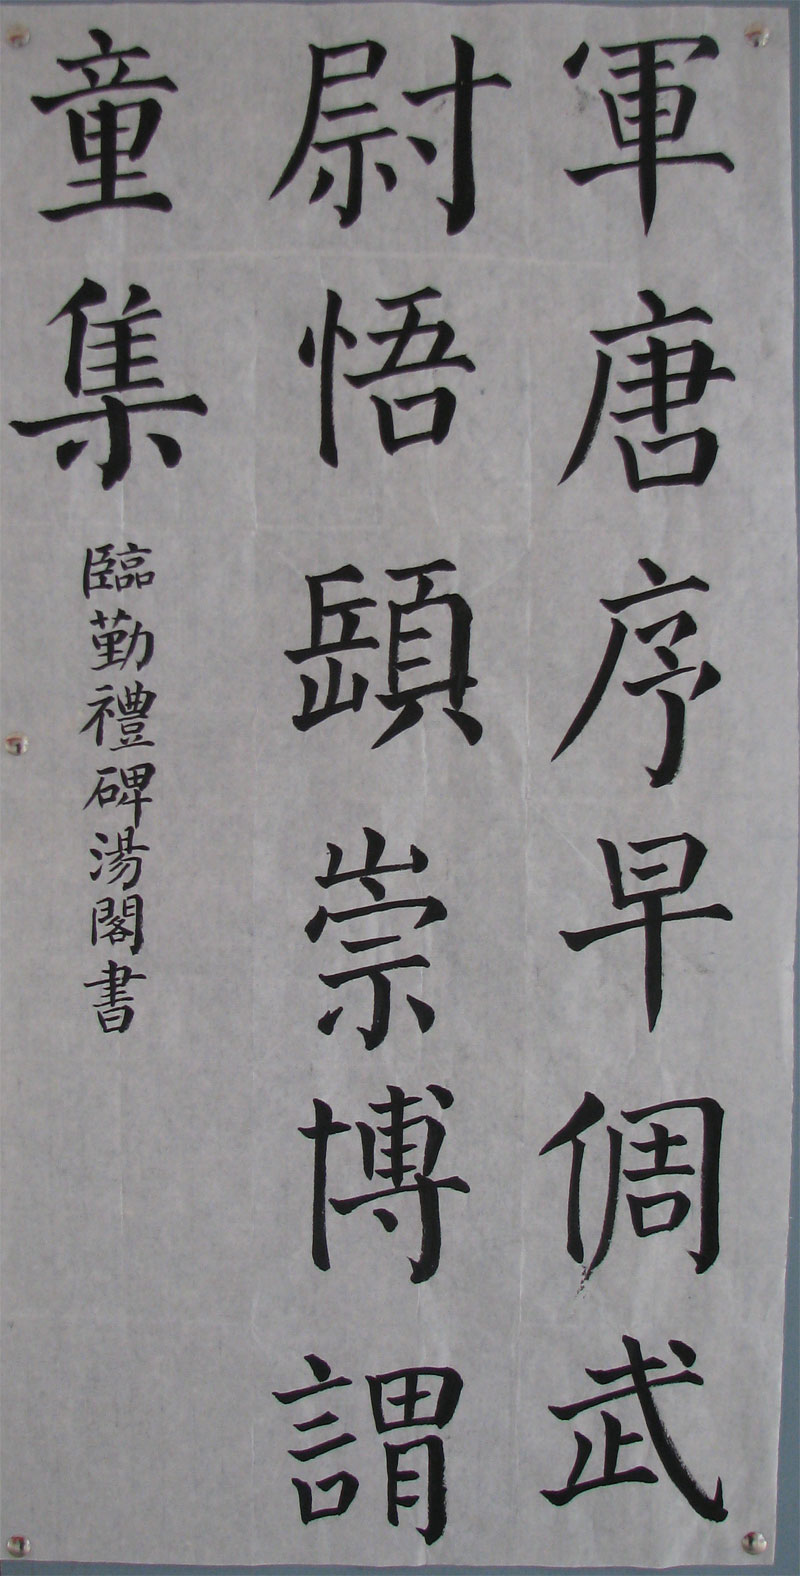 軍唐序早倜武
尉悟崇博謂
童集
臨勤禮碑湯閣書